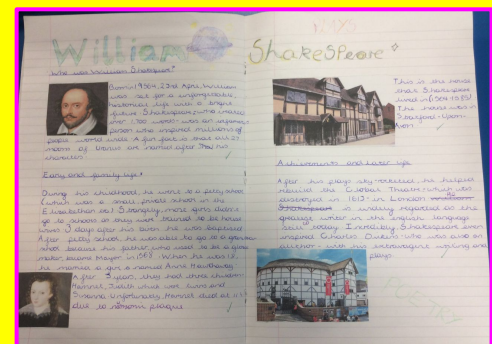 William
Who was William Shakespeare?
Born in 1564, 23rd April, William
was set for a unforgettable,
historical life with a bright
future. Shakespeare, who invented
over 1700 words, was an
person who inspired millions of
people world wide. A fun fact is that all 27
moons of Uranus are named after his
characters.
Early and family life:
During his childhood, he went to a petty school
(which was a small private school in the
Elizabethan era). Strangely, most girls didn't
go to schools as they were trained to be house
wives 3 days after his birth he was baptised.
After petty school, he was able to go to a grammar
school because his father, who used to be a glove
maker, became Mayor in 1568. When he was 18,
he married a girl named Anne Hathaway.
After 3 years, they had three children:
Hamnet, Judith which was twins and
Susanna. Unfortunately, Hamnet died at 11
due to plague
PLAYS
Shakespeare
This is the house
that Shakespeare
lived in (1564-1585)
The house was in
Stratford-Upon-
Avon.
Achievements and later life
After his plays sky-rocketed, he helped
rebuild the Globe Theatre which was
destroyed in 1613 in London.
Shakespeare is widely regarded as the
greatest writer in the english language
even today. Incredibly, Shakespeare even
inspired Charles Dickens who was also an
author with his extravagant writing and
plays.
POETRY